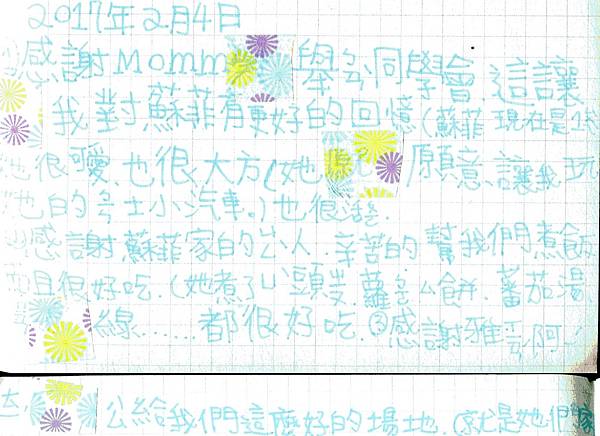 2017年2月4日
感謝Momm 舉ㄅㄢ同學會.這讓
我對蘇菲有更好的回憶(蘇菲現在是
也很可愛也很大方(她 願意讓我玩
她的 小汽車。)也很
感謝蘇菲家的 人.辛苦的幫我們煮飯
而且很好吃.(她煮了 頭 .蘿 餅.蕃茄湯
線……都很好吃.③感謝雅雲阿
公給我們這麼好的場地.(就是她們家